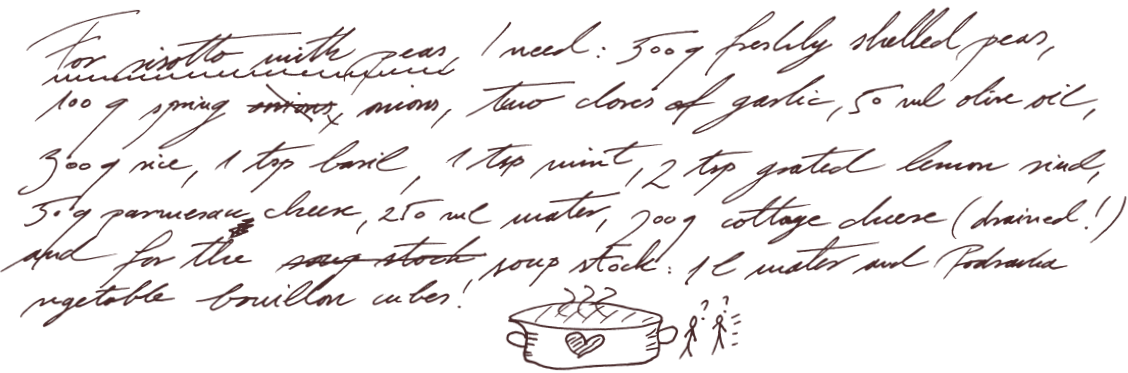 For risotto with peas, I need: 300g freshly shelled peas,
100 g spring onions, onions, two cloves of garlic, 50 ml olive oil,
300g rice, 1 tsp basil, 1 tsp mint, 2 tsp grated lemon rind,
30g parmesan cheese, 250 ml water, 200g cottage cheese (drained!)
and for the soup stock soup stock: 1 l water and Podravka
vegetable bouillon cubes!
? ?